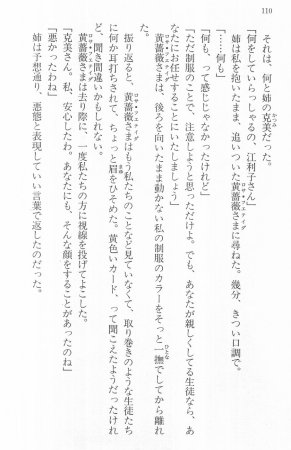 110
それは、何と姉の克美だった。
「何をしていらっしゃるの、江利子さん」
姉は私を抱いたまま、追いついた黄薔薇さまに尋ねた。幾分、きつい口調で。
「……何も」
「何も、って感じじゃなかったけれど」
「ただ制服のことで、注意しようと思っただけよ。でも、あなたが親しくしてる生徒なら、あ
なたにお任せすることにいたしましょう」
黄薔薇さまは、後ろを向いたまま動かない私の制服のカラーをそっと一撫でしてから離れ
た。
振り返ると、黄薔薇さまはもう私たちのことなど見ていなくて、取り巻きのような生徒たち
に何か耳打ちされて、ちょっと眉をひそめた。黄色いカード、って聞こえたようだったけれ
ど、聞き間違いかもしれない。
黄薔薇さまは去り際に、一度私たちの方に視線を投げてよこした。
「克美さん。私、安心したわ。あなたにも、そんな顔をすることがあったのね」
「悪かったわね」
姉は予想通り、悪態と表現していい言葉で返したのだった。